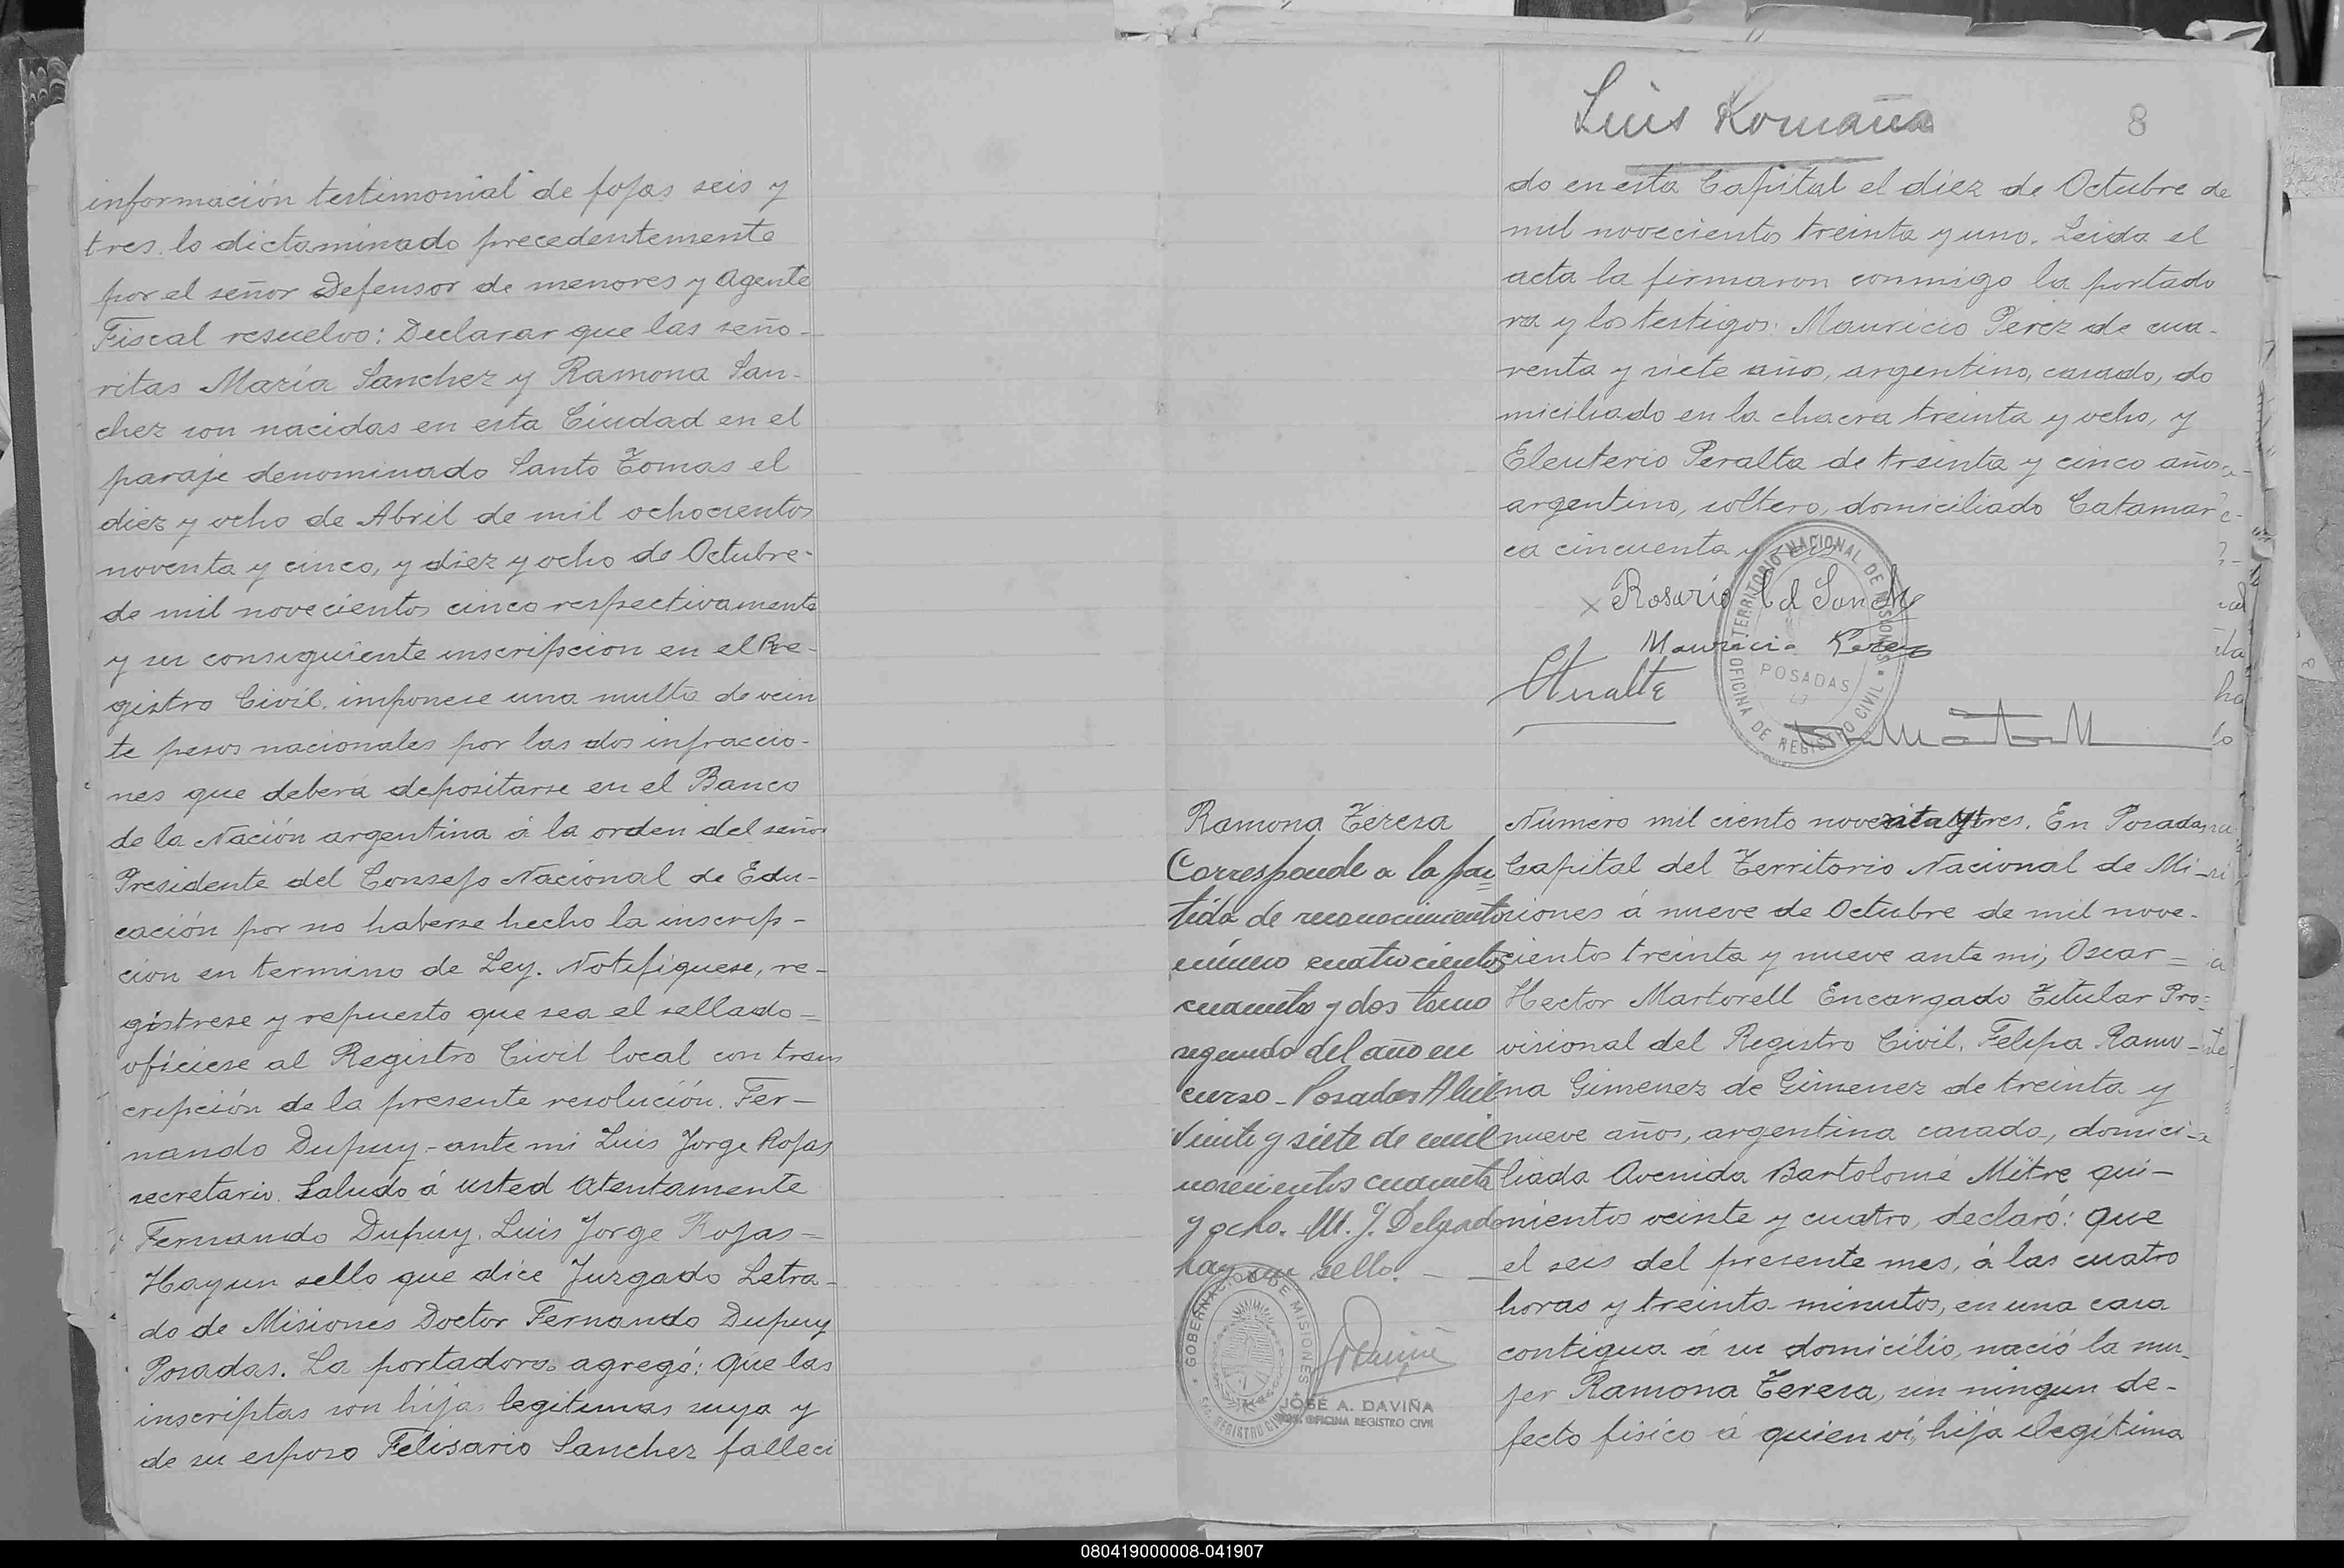 información testimonial de fojas seis y
tres. lo dictaminado precedentemente
por el señor Defensor de menores y Agente
Fiscal resuelvo: Declarar que las seño-
ritas María Sanchez y Ramona San-
chez son nacidas en esta Ciudad en el
paraje denominado Santo Tomas el
diez y ocho de Abril de mil ochocientos
noventa y cinco, y diez y ocho de Octubre-
de mil novecientos cinco respectivamente
y su consiguiente inscripscion en el Re-
gistro Civil, imponese una multa de vein
te pesos nacionales por las dos infraccio-
nes que deberá depositarse en el Banco
de la Nación argentina á la orden del señor
Presidente del Consejo Nacional de Edu-
cación por no haberse hecho la inscrip-
ción en termino de Ley. Notifiquese, re-
gistrese y repuesto que sea el sellado=
ofíciese al Registro Civil local con trans
cripción de la presente resolución. Fer-
nando Dupuy-ante mi Luis Jorge Rojas
secretario. Saludo á usted atentamente
Fernando Dupuy. Luis Jorge Rojas-
Hay un sello que dice Juzgado Letra-
do de Misiones Doctor Fernando Dupuy
Posadas. La portadora agregó: que las
inscriptas son hijas legitimas suya y
de su esposo Felisario Sanchez falleci
Luis Romaña
8
do en esta Capital el diez de Octubre de
mil novecientos treinta y uno. Leida el
acta la firmaron conmigo la portado
ra y los testigos: Mauricio Perez de cua-
renta y siete años, argentino, casado, do
miciliado en la chacra treinta y ocho, y
Eleuterio Peralta de treinta y cinco años,
argentino, soltero, domiciliado Catamar
ca cincuenta y seis
x Rosario C d Sanch
Mauricio Perez
TERRITORIO NACIONAL DE MISIONES
POSADAS
OFICINA DE REGISTRO CIVIL
Ramona Teresa
Corresponde a la par
tida de reconocimiento
número cuatrocientos
cuarenta y dos tomo
segundo del año en
curso - Posadas Abril
veinte y siete de mil
novecientos cuarenta
y ocho. M. J. Delgado
hay un sello. -
GOBERNACION DE MISIONES
REGISTRO CIVIL
JOSÉ A. DAVIÑA
OFICINA REGISTRO CIVIL
Número mil ciento noventa y tres. En Posadas
Capital del Territorio Nacional de Mi-
siones á nueve de Octubre de mil nove-
cientos treinta y nueve ante mi, Oscar=
Hector Martorell Encargado Titular Pro=
visional del Registro Civil, Felipa Ramo-
na Gimenez de Gimenez de treinta y
nueve años, argentina casada, domici-
liada Avenida Bartolomé Mitre qui-
nientos veinte y cuatro, declaró: que
el seis del presente mes, á las cuatro
horas y treinta minutos, en una casa
contigua á su domicilio, nació la mu-
jer Ramona Teresa, sin ningun de-
fecto fisico á quien vi, hija ilegítima
080419000008-041907